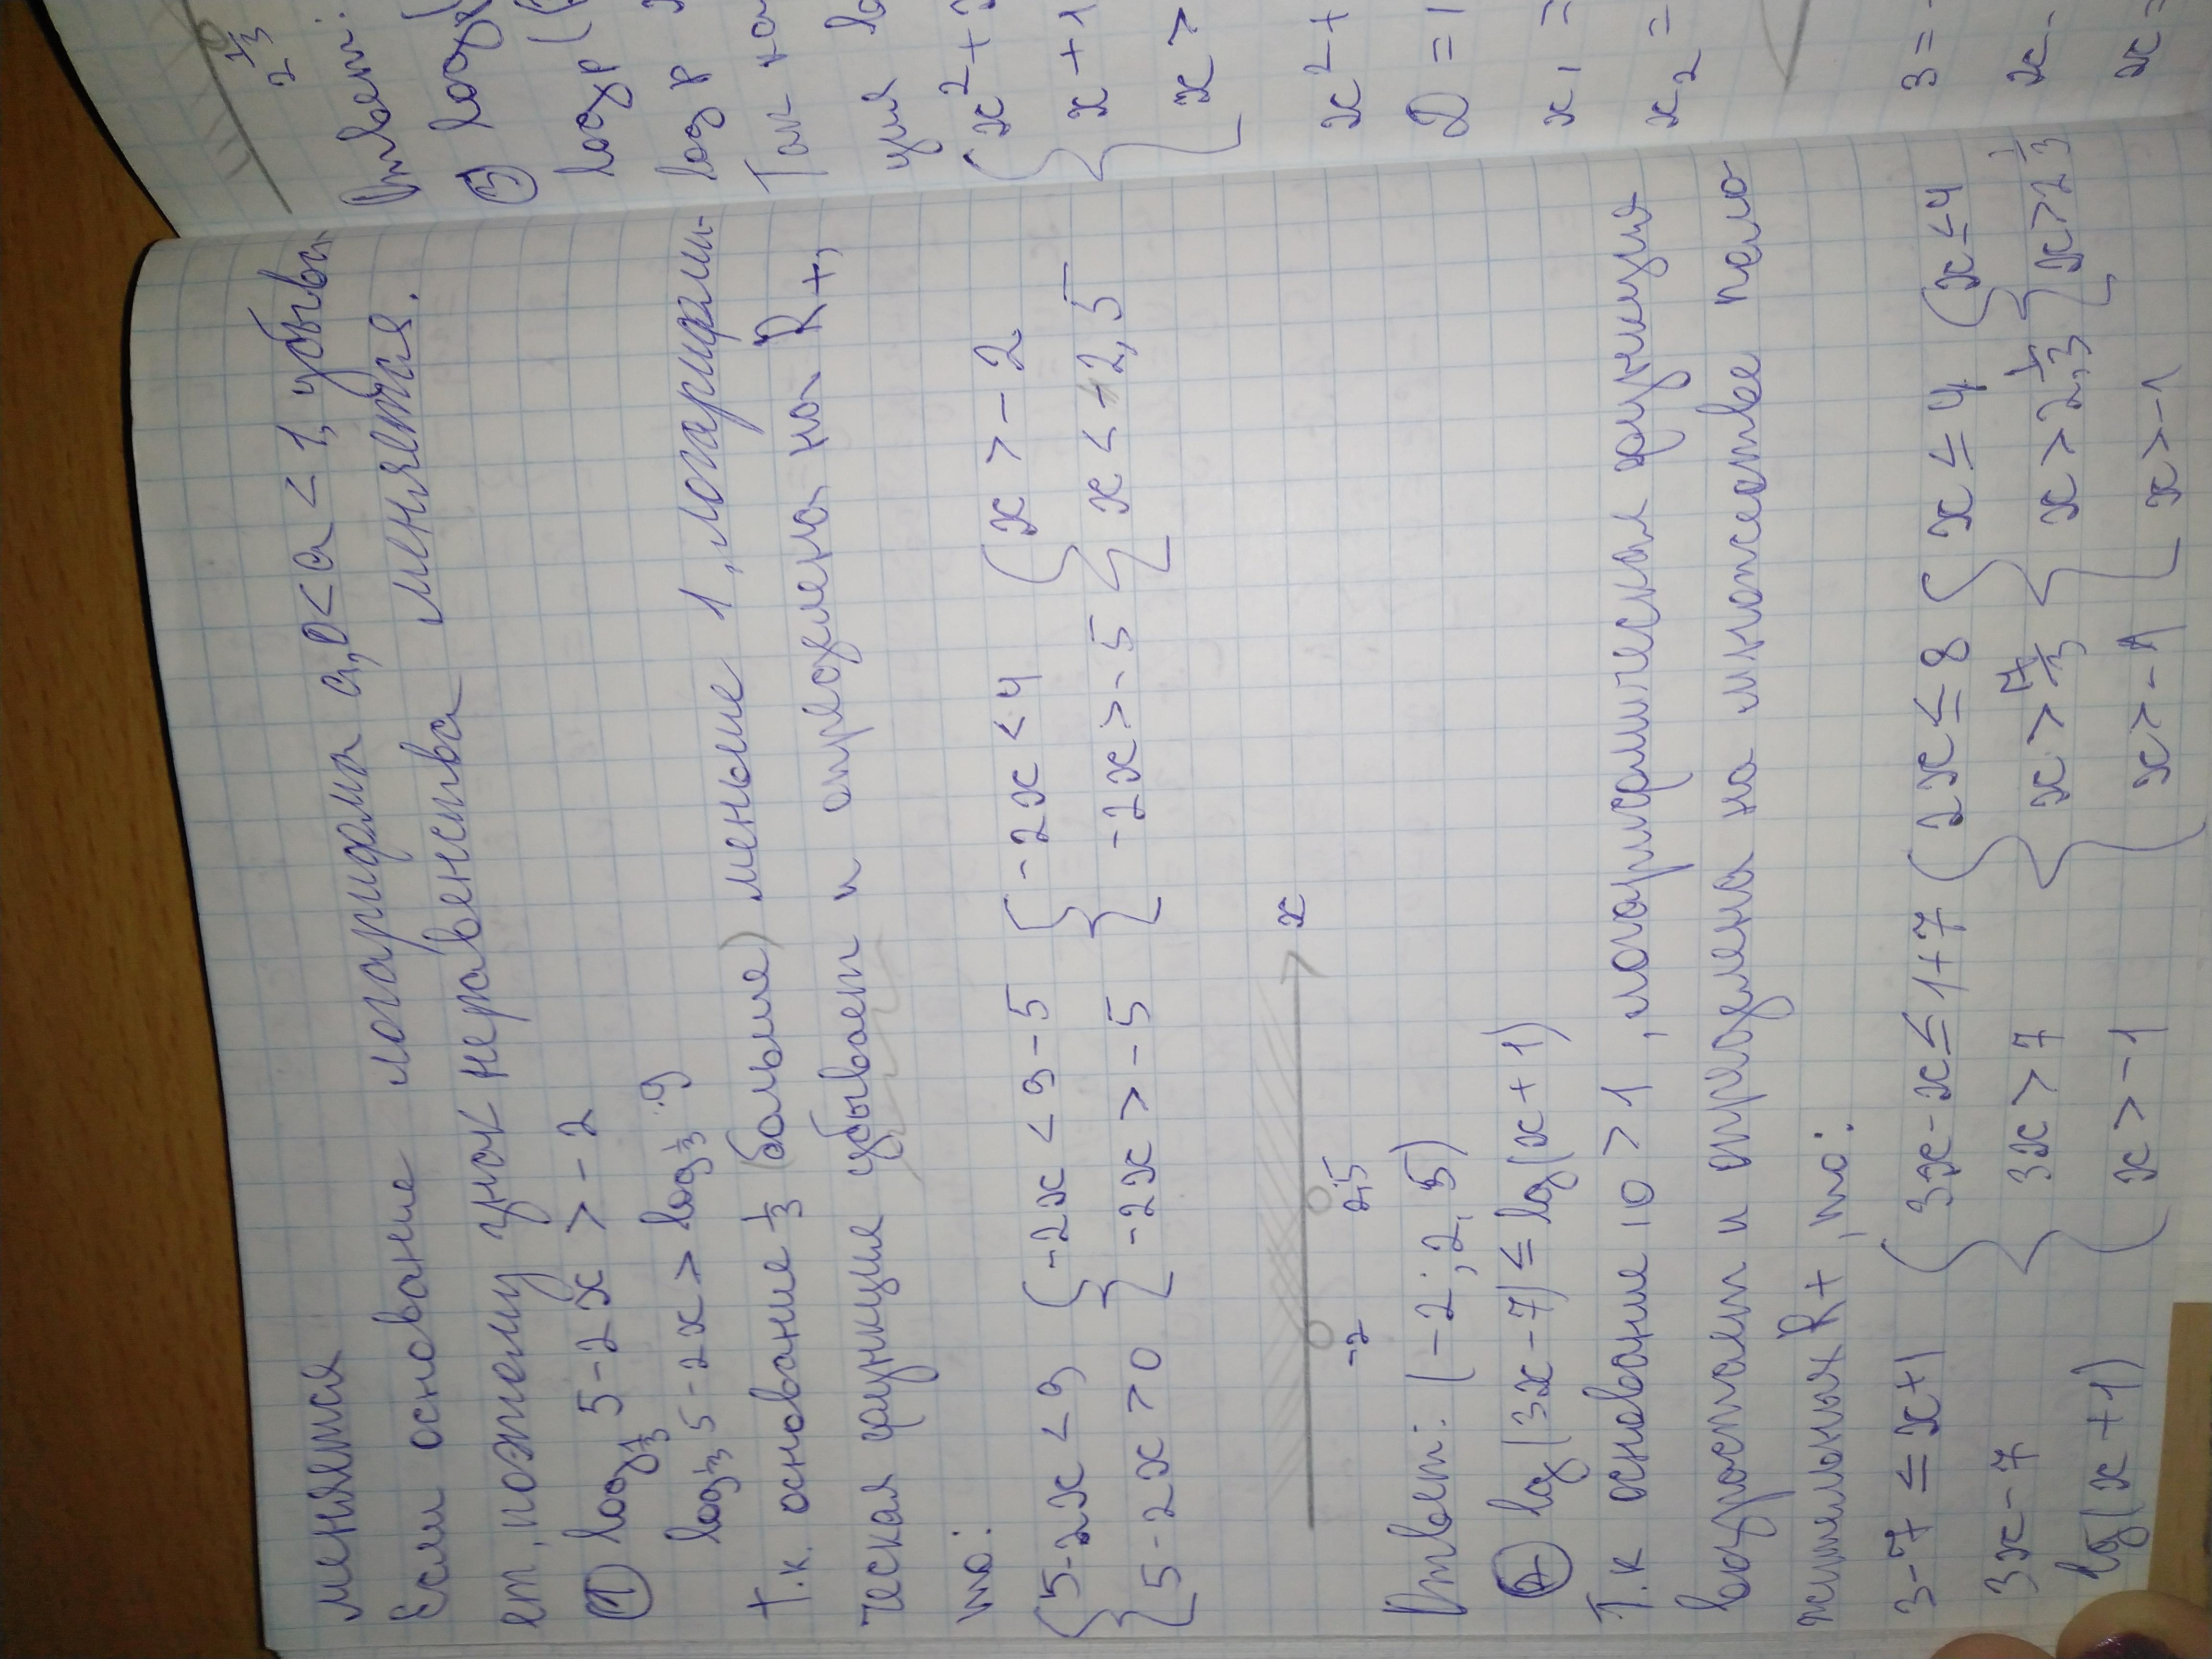 меняется
Если основание логарифма a, 0<a<1, убыва
ет, поэтому знак неравенства меняется.
① log 1/3 5-2x > -2
log 1/3 5-2x > log 1/3 9
т.к. основание 1/3 (больше) меньше 1, логарифми-
ческая функция убывает и определена на R+,
то:
{5-2x<9 {-2x<9-5 {-2x<4 {x>-2
{5-2x>0 {-2x>-5 {-2x>-5 {x<2,5
-2 2,5 x
Ответ: (-2; 2,5)
② lg(3x-7) ≤ lg(x+1)
Т.к основание 10>1, логарифмическая функция
возрастает и определена на множестве поло
жительных R+, то:
3-7≤x+1 {3x-x≤1+7 {2x≤8 {x≤4 {x≤4
3x-7 {3x>7 {x>7/3 {x>2 1/3 {x>2 1/3
lg(x+1) {x>-1 {x>-1 {x>-1
2 1/3
Ответ:
③ log
log p (
log p
Так ка
ция
{x²+
{x+1
{x>
x²+
D=1
x₁=
x₂=
3=
x-
x=